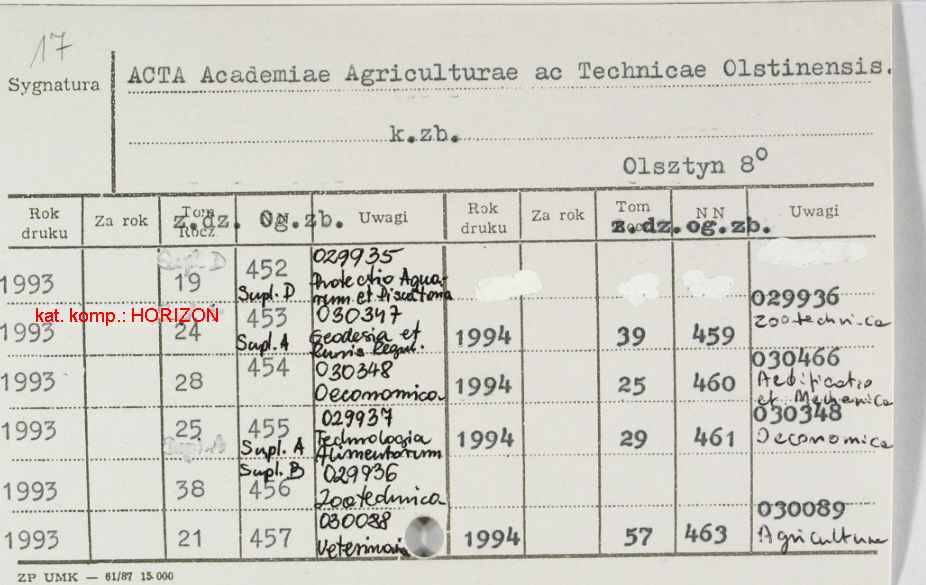 17
Sygnatura
ACTA Academiae Agriculturae ac Technicae Olstinensis.
k.zb.
Olsztyn 8º
Rok druku Za rok Tom Rocz z.dz. og.zb. Uwagi Rok druku Za rok Tom z.dz.og.zb. NN Uwagi
1993 19 452 Supl. D 029935 Protectio Aquarum et Piscatoria
kat. komp.: HORIZON
1993 24 453 Supl. A 030347 Geodesia et Ruris Regul.
1993 28 454 030348 Oeconomica
1993 25 455 Supl. A 029937 Technologia Alimentorum
1993 38 Supl. B 456 029936 Zootechnica
1993 21 457 030088 Veterinaria
1994 39 459 029936 Zootechnica
1994 25 460 030466 Aedificatio et Mechanica
1994 29 461 030348 Oeconomica
1994 57 463 030089 Agricultura
ZP UMK — 61/87 15.000